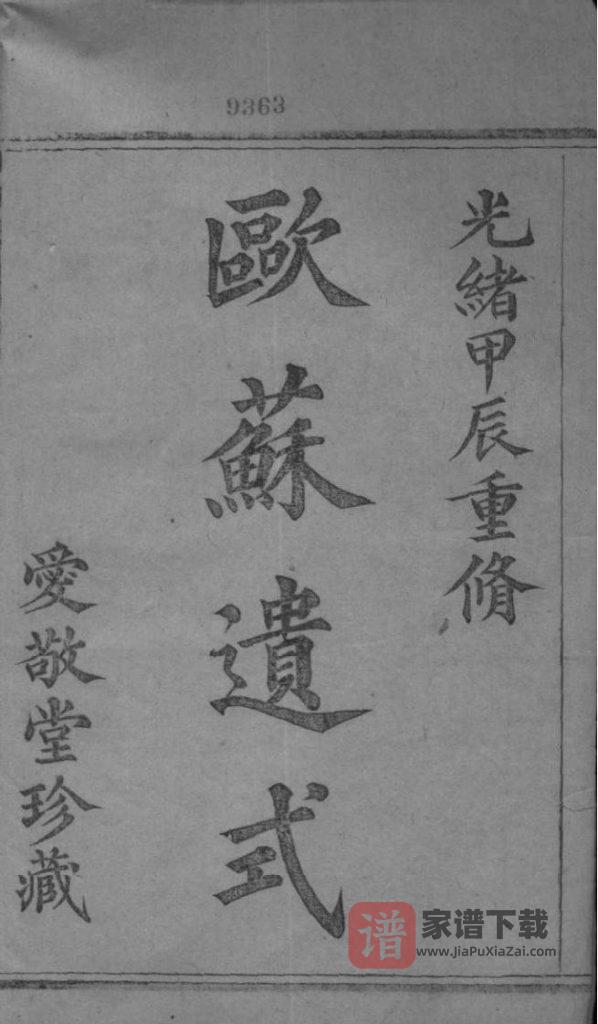 9363
光緒甲辰重脩
歐蘇遺式
愛敬堂珍藏
谱 家谱下载
www.JiaPuXiaZai.com